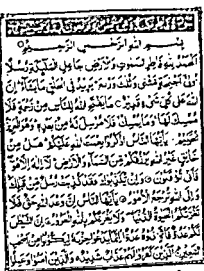 بِسْمِ اللهِ الرَّحْمٰنِ الرَّحِيْمِ
اَلْحَمْدُ لِلّٰهِ فَاطِرِ السَّمٰوٰتِ وَالْاَرْضِ جَاعِلِ الْمَلٰٓئِكَةِ رُسُلًا
اُولِىْٓ اَجْنِحَةٍ مَّثْنٰى وَثُلٰثَ وَرُبٰعَ يَزِيْدُ فِى الْخَلْقِ مَا يَشَآءُ اِنَّ
اللهَ عَلٰى كُلِّ شَىْءٍ قَدِيْرٌ مَا يَفْتَحِ اللهُ لِلنَّاسِ مِنْ رَّحْمَةٍ فَلَا
مُمْسِكَ لَهَا وَمَا يُمْسِكْ فَلَا مُرْسِلَ لَهٗ مِنْۢ بَعْدِهٖ وَهُوَ الْعَزِيْزُ
الْحَكِيْمُ يٰٓاَيُّهَا النَّاسُ اذْكُرُوْا نِعْمَتَ اللهِ عَلَيْكُمْ هَلْ مِنْ
خَالِقٍ غَيْرُ اللهِ يَرْزُقُكُمْ مِّنَ السَّمَآءِ وَالْاَرْضِ لَآ اِلٰهَ اِلَّا هُوَ
فَاَنّٰى تُؤْفَكُوْنَ وَاِنْ يُّكَذِّبُوْكَ فَقَدْ كُذِّبَتْ رُسُلٌ مِّنْ قَبْلِكَ
وَاِلَى اللهِ تُرْجَعُ الْاُمُوْرُ يٰٓاَيُّهَا النَّاسُ اِنَّ وَعْدَ اللهِ حَقٌّ فَلَا
تَغُرَّنَّكُمُ الْحَيٰوةُ الدُّنْيَا وَلَا يَغُرَّنَّكُمْ بِاللهِ الْغَرُوْرُ اِنَّ الشَّيْطٰنَ
لَكُمْ عَدُوٌّ فَاتَّخِذُوْهُ عَدُوًّا اِنَّمَا يَدْعُوْا حِزْبَهٗ لِيَكُوْنُوْا مِنْ اَصْحٰبِ
السَّعِيْرِ اَلَّذِيْنَ كَفَرُوْا لَهُمْ عَذَابٌ شَدِيْدٌ وَالَّذِيْنَ اٰمَنُوْا وَعَمِلُوا